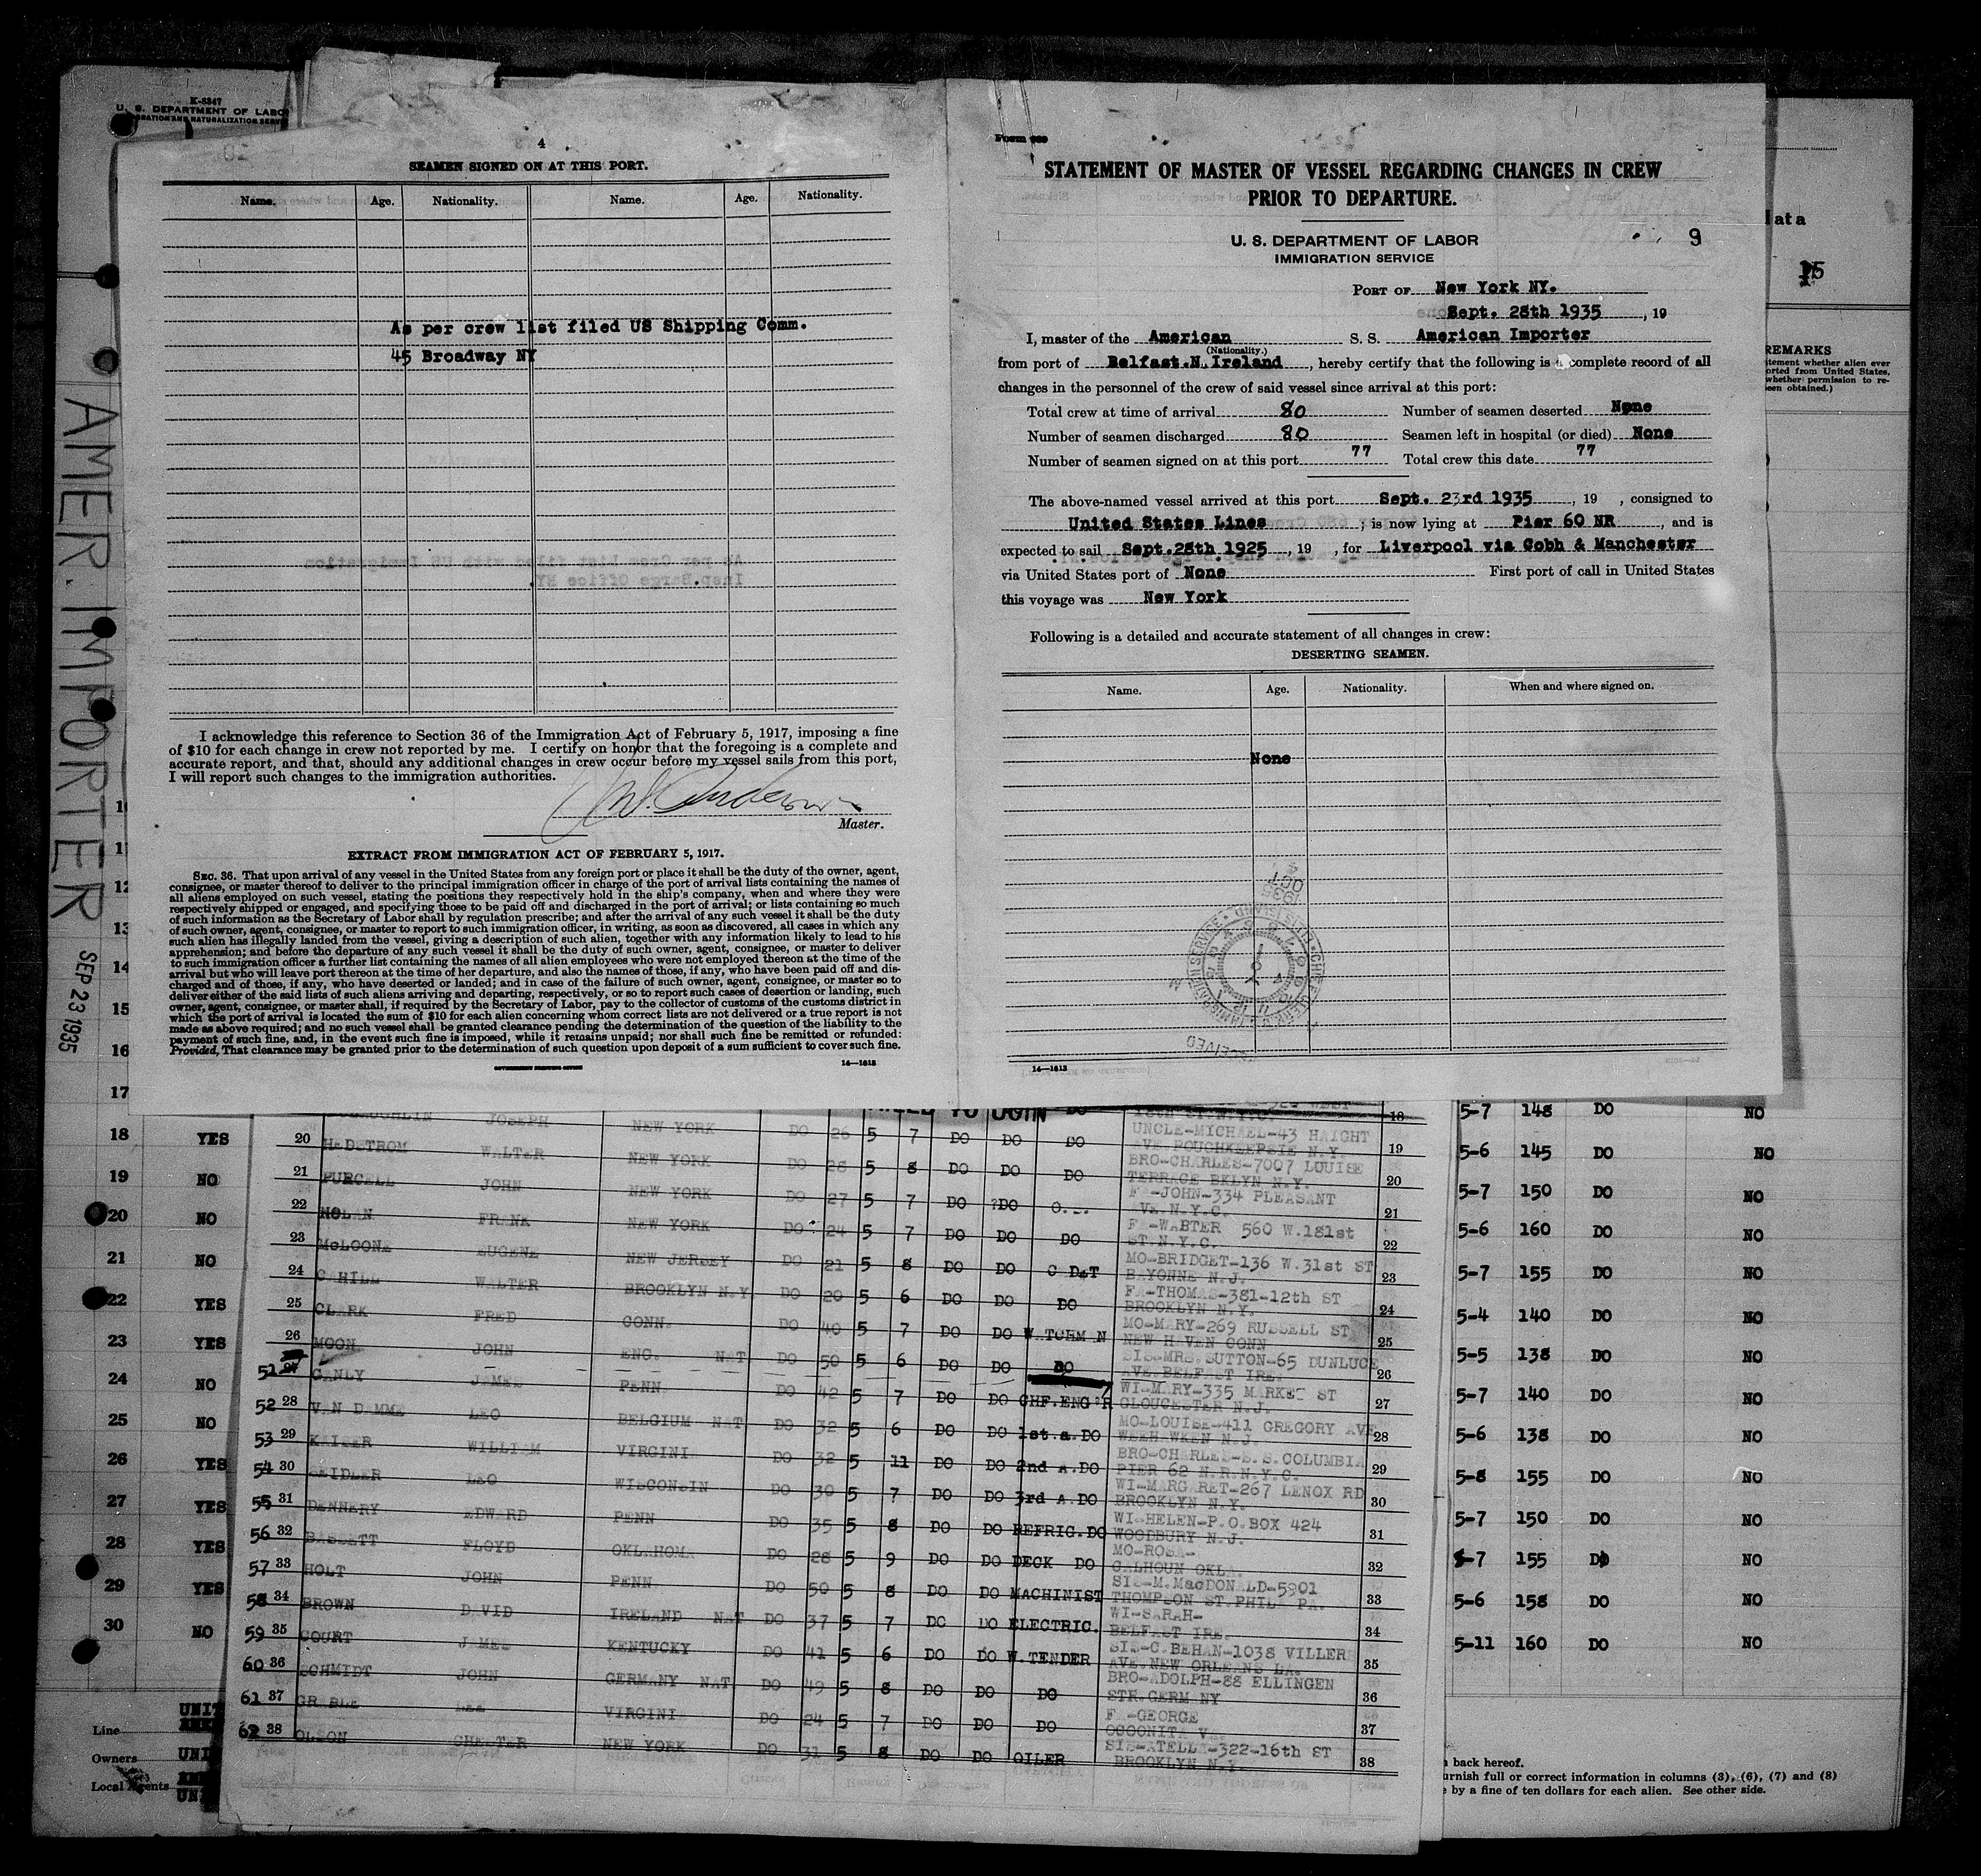 K-8847
U. S. DEPARTMENT OF LABO
GRATION AND NATURALIZATION SERV
AMER. IMPORTER
SEP 23 1935
4
SEAMEN SIGNED ON AT THIS PORT.
Name. Age. Nationality. Name. Age. Nationality.
As per crew list filed US Shipping Comm.
45 Broadway NY
I acknowledge this reference to Section 36 of the Immigration Act of February 5, 1917, imposing a fine
of $10 for each change in crew not reported by me. I certify on honor that the foregoing is a complete and
accurate report, and that, should any additional changes in crew occur before my vessel sails from this port,
I will report such changes to the immigration authorities.
Anderson
Master.
EXTRACT FROM IMMIGRATION ACT OF FEBRUARY 5, 1917.
SEC. 36. That upon arrival of any vessel in the United States from any foreign port or place it shall be the duty of the owner, agent,
consignee, or master thereof to deliver to the principal immigration officer in charge of the port of arrival lists containing the names of
all aliens employed on such vessel, stating the positions they respectively hold in the ship's company, when and where they were
respectively shipped or engaged, and specifying those to be paid off and discharged in the port of arrival; or lists containing so much
of such information as the Secretary of Labor shall by regulation prescribe; and after the arrival of any such vessel it shall be the duty
of such owner, agent, consignee, or master to report to such immigration officer, in writing, as soon as discovered, all cases in which any
such alien has illegally landed from the vessel, giving a description of such alien, together with any information likely to lead to his
apprehension; and before the departure of any such vessel it shall be the duty of such owner, agent, consignee, or master to deliver
to such immigration officer a further list containing the names of all alien employees who were not employed thereon at the time of the
arrival but who will leave port thereon at the time of her departure, and also the names of those, if any, who have been paid off and dis-
charged and of those, if any, who have deserted or landed; and in case of the failure of such owner, agent, consignee, or master so to
deliver either of the said lists of such aliens arriving and departing, respectively, or so to report such cases of desertion or landing, such
owner, agent, consignee, or master shall, if required by the Secretary of Labor, pay to the collector of customs of the customs district in
which the port of arrival is located the sum of $10 for each alien concerning whom correct lists are not delivered or a true report is not
made as above required; and no such vessel shall be granted clearance pending the determination of the question of the liability to the
payment of such fine, and, in the event such fine is imposed, while it remains unpaid; nor shall such fine be remitted or refunded:
Provided, That clearance may be granted prior to the determination of such question upon deposit of a sum sufficient to cover such fine.
GOVERNMENT PRINTING OFFICE 14—1613
STATEMENT OF MASTER OF VESSEL REGARDING CHANGES IN CREW
PRIOR TO DEPARTURE.
U. S. DEPARTMENT OF LABOR
IMMIGRATION SERVICE
9
PORT OF New York NY.
Sept. 28th 1935, 19
I, master of the American S. S. American Importer
(Nationality.)
from port of Belfast.N.Ireland, hereby certify that the following is a complete record of all
changes in the personnel of the crew of said vessel since arrival at this port:
Total crew at time of arrival 80 Number of seamen deserted None
Number of seamen discharged 80 Seamen left in hospital (or died) None
Number of seamen signed on at this port 77 Total crew this date 77
The above-named vessel arrived at this port Sept. 23rd 1935, 19 , consigned to
United States Lines ; is now lying at Pier 60 NR, and is
expected to sail Sept.28th 1925, 19 , for Liverpool via Cobh & Manchester
via United States port of None First port of call in United States
this voyage was New York
Following is a detailed and accurate statement of all changes in crew:
DESERTING SEAMEN.
Name. Age. Nationality. When and where signed on.
None
14—1613
lata
REMARKS
tement whether alien ever
orted from United States,
whether permission to re-
een obtained.)
JOSEPH NEW YORK DO 26 5 7 DO DO DO UNCLE-MICHAEL-43 HAIGHT AVE.POUGHKEEPSIE N.Y. 19
20 HEDSTROM WALTER NEW YORK DO 28 5 8 DO DO DO BRO-CHARLES-7007 LOUISE TERRACE BKLYN N.Y. 20
21 PURCELL JOHN NEW YORK DO 27 5 7 DO DO F -JOHN-334 PLEASANT AVE.N.Y.C. 21
22 NOLAN FRANK NEW YORK DO 24 5 7 DO DO DO F -WABTER 560 W.181st ST.N.Y.C. 22
23 McLOONE EUGENE NEW JERSEY DO 21 5 8 DO DO CADET MO-BRIDGET-136 W.31st ST BAYONNE N.J. 23
24 CAHILL WALTER BROOKLYN N.Y DO 20 5 6 DO DO DO FA-THOMAS-381-12th ST BROOKLYN N.Y. 24
25 CLARK FRED CONN. DO 40 5 7 DO DO WATCHMAN MO-MARY-269 RUSSELL ST NEW HAVEN CONN 25
26 MOON JOHN ENG. NAT DO 50 5 6 DO DO DO SIS-MRS.SUTTON-65 DUNLUCE AVE.BELFAST IRE. 26
51 27 GANLY JAMES PENN. DO 42 5 7 DO DO CHF.ENG'R WI-MARY-335 MARKET ST GLOUCESTER N.J. 27
52 28 VAN DAMME LEO BELGIUM NAT DO 32 5 6 DO DO 1st.a.DO MO-LOUISE-411 GREGORY AVE WEEHAWKEN N.J. 28
53 29 KAISER WILLIAM VIRGINIA DO 32 5 11 DO DO 2nd A.DO BRO-CHARLES-S.S.COLUMBIA PIER 62 N.R.N.Y.C. 29
54 30 SEIDLER LEO WISCONSIN DO 30 5 7 DO DO 3rd A.DO WI-MARGARET-267 LENOX RD BROOKLYN N.Y. 30
55 31 DENNERY EDWARD PENN DO 35 5 8 DO DO REFRIG.DO WI-HELEN-P.O.BOX 424 WOODBURY N.J. 31
56 32 BASSETT FLOYD OKLAHOMA DO 28 5 9 DO DO DECK DO MO-ROSA- CALHOUN OKLA. 32
57 33 HOLT JOHN PENN DO 50 5 8 DO DO MACHINIST SIS-M.MacDONALD-5901 THOMPSON ST.PHILA PA. 33
58 34 BROWN DAVID IRELAND NAT DO 37 5 7 DO DO ELECTRIC. WI-SARAH- BELFAST IRE. 34
59 35 COURT JAMES KENTUCKY DO 41 5 6 DO DO W.TENDER SIS-C.BEHAN-1038 VILLER AVE.NEW ORLEANS LA. 35
60 36 SCHMIDT JOHN GERMANY NAT DO 49 5 8 DO DO DO BRO-ADOLPH-88 ELLINGEN STR.GERMANY 36
61 37 GRABLE LEE VIRGINIA DO 24 5 7 DO DO DO FA-GEORGE OCOONITA VA 37
62 38 OLSON CHESTER NEW YORK DO 31 5 8 DO DO OILER SIS-ATELLA-322-16th ST BROOKLYN N.Y. 38
12
13
14
15
16
17
18 YES
19 NO
20 NO
21 NO
22 YES
23 YES
24 NO
25 NO
26 YES
27 YES
28 YES
29 YES
30 NO
5-7 148 DO NO
5-6 145 DO NO
5-7 150 DO NO
5-6 160 DO NO
5-7 155 DO NO
5-4 140 DO NO
5-5 138 DO NO
5-7 140 DO NO
5-6 138 DO NO
5-8 155 DO NO
5-7 150 DO NO
5-7 155 DO NO
5-6 158 DO NO
5-11 160 DO NO
Line
Owners
Local Agents
back hereof.
urnish full or correct information in columns (3), (6), (7) and (8)
e by a fine of ten dollars for each alien. See other side.